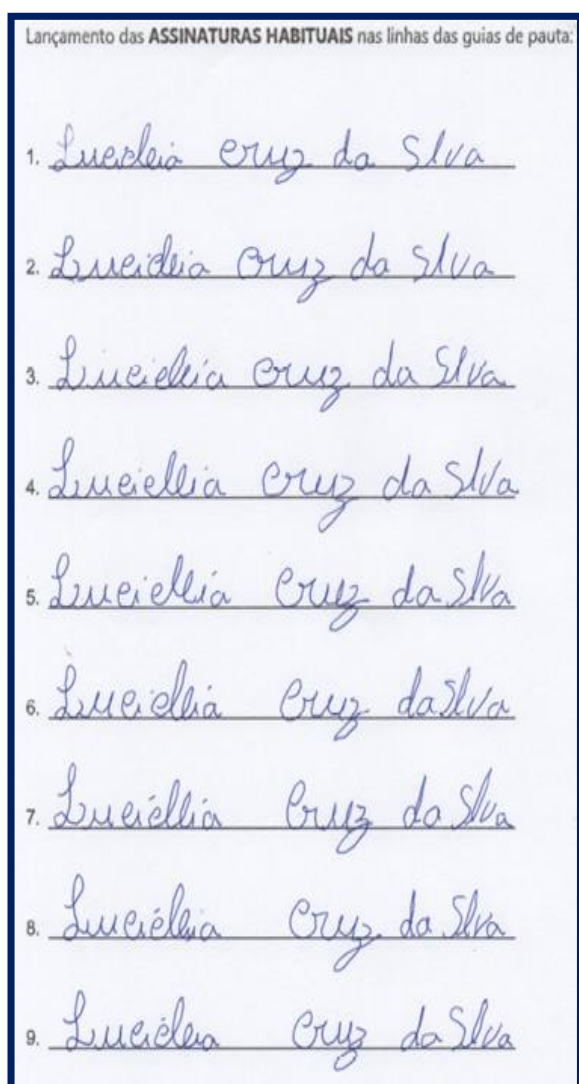 Lançamento das ASSINATURAS HABITUAIS nas linhas das guias de pauta:
1. Lucicleia cruz da Silva
2. Lucicleia Cruz da Silva
3. Lucicleia Cruz da Silva
4. Lucicleia Cruz da Silva
5. Lucicleia Cruz da Silva
6. Lucicleia Cruz da Silva
7. Lucicleia Cruz da Silva
8. Lucicleia Cruz da Silva
9. Lucicleia Cruz da Silva